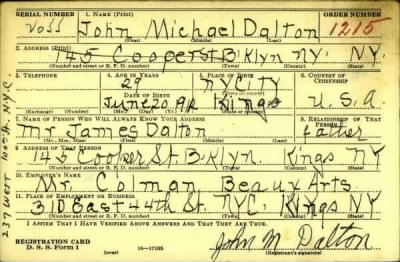 SERIAL NUMBER 1. NAME (Print) ORDER NUMBER
John Michael Dalton 1215
(First) (Middle) (Last)
2. ADDRESS (Print)
145 Cooper St Bklyn NY. NY.
(Number and street or R. F. D. number) (Town) (County) (State)
3. TELEPHONE 4. AGE IN YEARS 5. PLACE OF BIRTH 6. COUNTRY OF CITIZENSHIP
29 NY CTY
DATE OF BIRTH (Town or county)
June 20, 1912 Kings U.S.A.
(Exchange) (Number) (Mo.) (Day) (Yr.) (State or country)
7. NAME OF PERSON WHO WILL ALWAYS KNOW YOUR ADDRESS 8. RELATIONSHIP OF THAT PERSON
Mr James Dalton father
(Mr., Mrs., Miss) (First) (Middle) (Last)
9. ADDRESS OF THAT PERSON
145 Cooper St Bklyn. Kings NY
(Number and street or R. F. D. number) (Town) (County) (State)
10. EMPLOYER'S NAME
Mr. Colman Beaux Arts
11. PLACE OF EMPLOYMENT OR BUSINESS
310 East 44th St. NYC. Kings NY
(Number and street or R. F. D. number) (Town) (County) (State)
I AFFIRM THAT I HAVE VERIFIED ABOVE ANSWERS AND THAT THEY ARE TRUE.
REGISTRATION CARD
D. S. S. Form 1 16—17105 John M Dalton
(Registrant's signature)
237 West 10th St. N.Y.C.